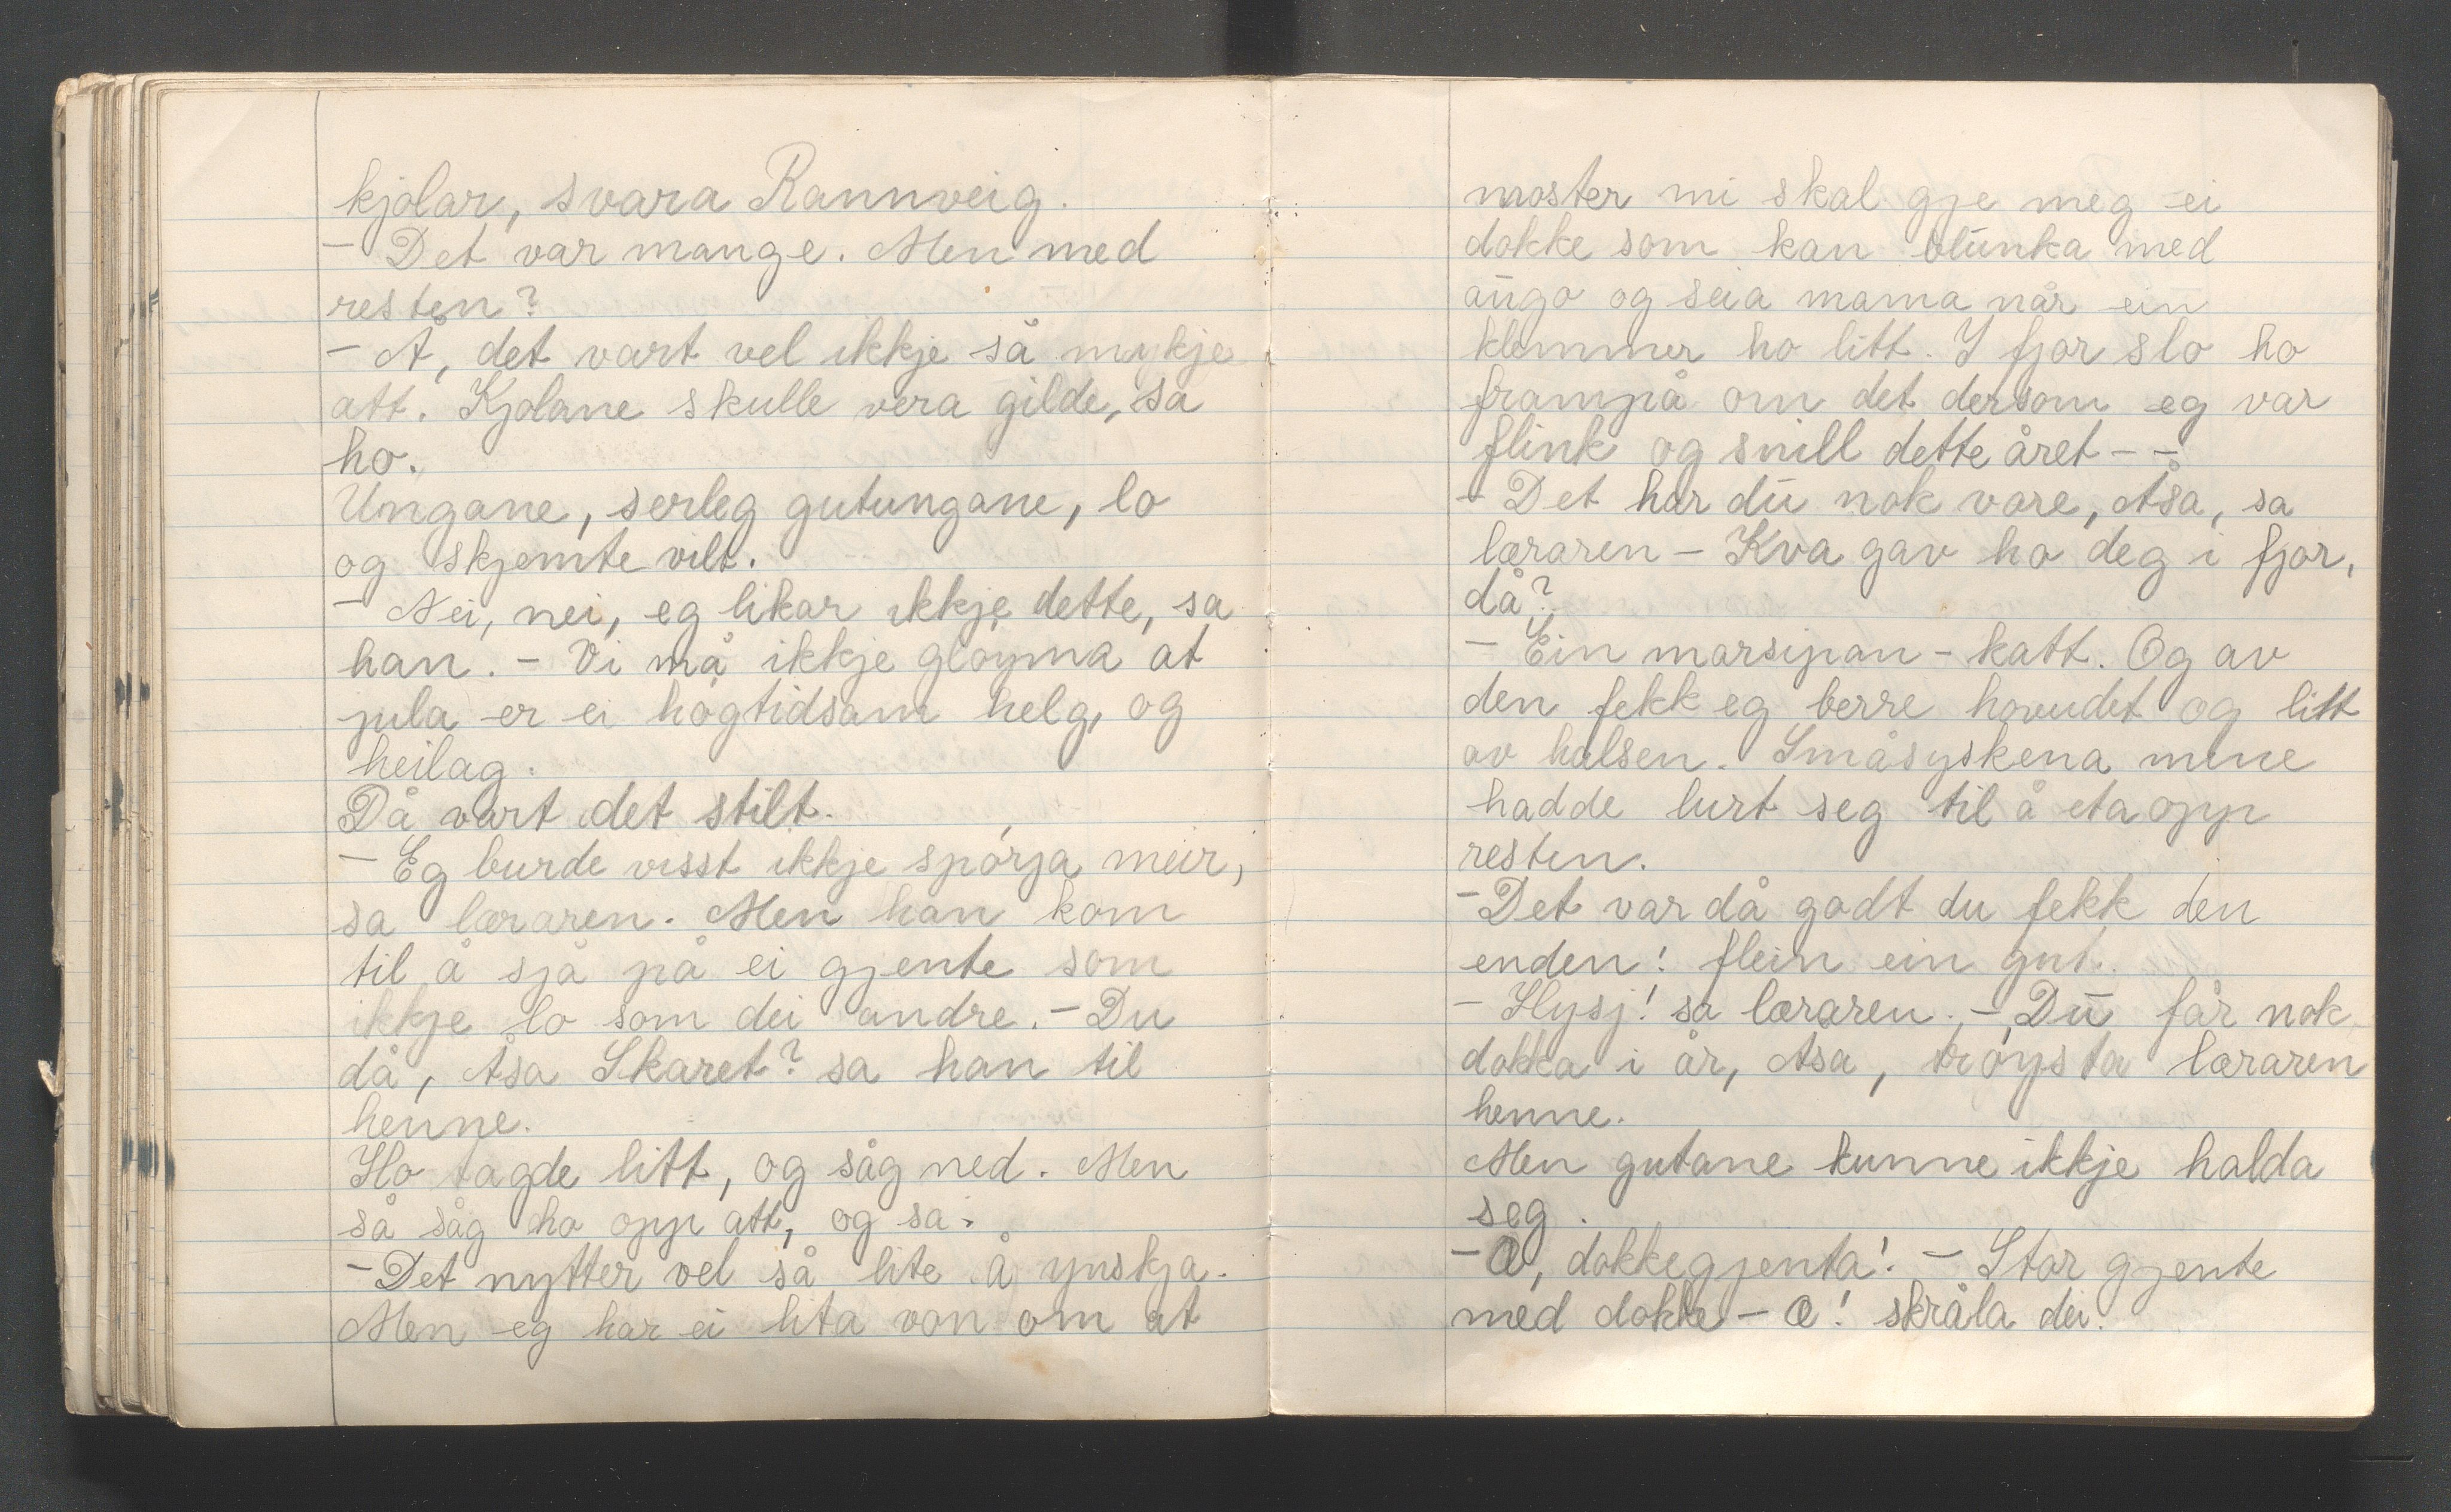 kjolar, svara Rannveig.
- Det var mange. Men med
resten?
- Å, det vart vel ikkje så mykje
att. Kjolane skulle vera gilde, sa
ho.
Ungane, serleg gutungane, lo
og skjemte vilt.
- Nei, nei, eg likar ikkje dette, sa
han. - Vi må ikkje gløyma at
jula er ei høgtidsam helg, og
heilag.
Då vart det stilt.
- Eg burde visst ikkje spørja meir,
sa læraren. Men han kom
til å sjå på ei gjente som
ikkje lo som dei andre. - Du
då, Åsa Skaret? sa han til
henne.
Ho tagde litt, og såg ned. Men
så såg ho opp att, og sa:
- Det nytter vel så lite å ynskja.
Men eg har ei lita von om at
moster mi skal gje meg ei
dokke som kan blunka med
augo og seia mama når ein
klemmer ho litt. I fjor slo ho
frampå om det dersom eg var
flink og snill dette året - -
- Det har du nok vore, Åsa, sa
læraren - Kva gav ho deg i fjor,
då?
- Ein marsipan-katt. Og av
den fekk eg berre hovudet og litt
av halsen. Småsyskena mine
hadde lurt seg til å eta opp
resten.
- Det var då godt du fekk den
enden! flein ein gut.
- Hysj! sa læraren. - Du får nok
dokka i år, Åsa, trøysta læraren
henne.
Men gutane kunne ikkje halda
seg.
- Æ, dokkegjenta! - Stor gjente
med dokke - æ! skråla dei.